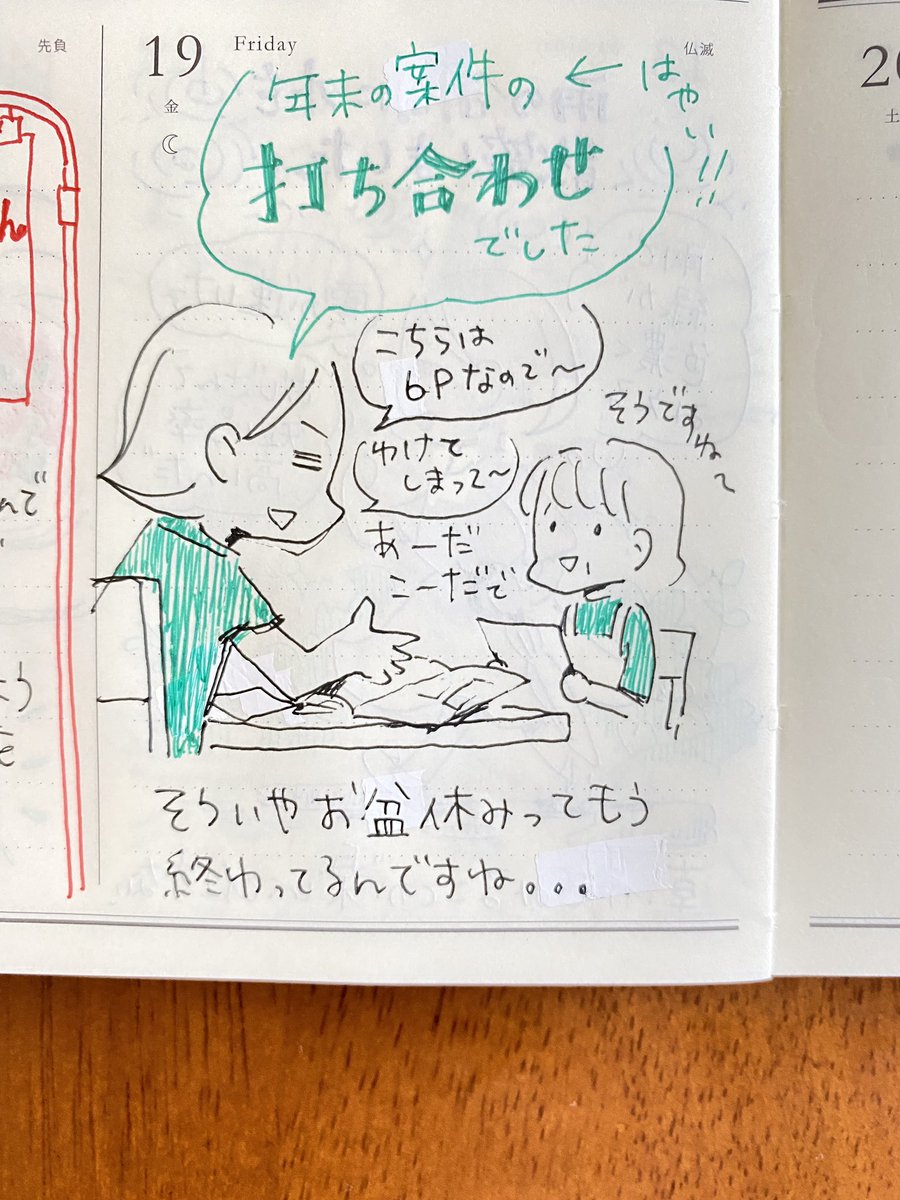 先負
19 Friday
仏滅
金
年末の案件の ← はやい!!
打ち合わせ
でした
こちらは
6Pなので〜
わけて
しまって〜
そうですね〜
あーだ
こーだで
そういやお盆休みってもう
終わってるんですね。。。
20
土
ん
んで